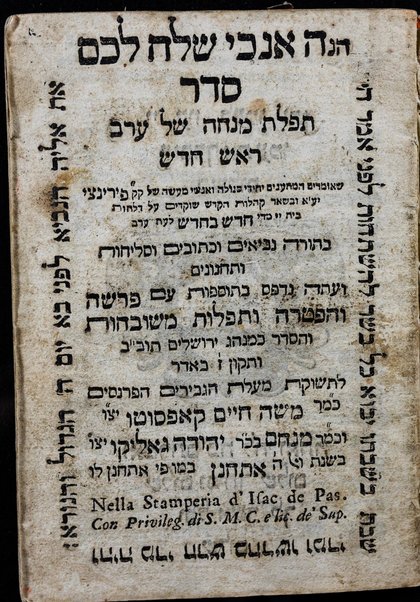 הנה אנכי שלח לכם
סדר
תפלת מנחה של ערב
ראש חדש
שאומרים המתענים יחידי סגולה ואנשי מעשה של קק פירינצי
יע״א ובשאר קהלות הקדש שוקדים על דלתות
בית יי מדי חדש בחדש לעת ערב
בתורה נביאים וכתובים וסליחות
ותחנונים
ועתה נדפס בתוספות עם פרשה
והפטרה ותפלות משובחות
והסדר כמנהג ירושלים תוב״ב
ותקון ז באדר
לתשוקת מעלת הגבירים הפרנסים
כמר משה חיים קאפסוטו יצו
וכמר מנחם בכר יהודה גאליקו יצו
בשנת ואל ה אתחנן במו פי אתחנן לו
Nella Stamperia d' Isac de Pas.
Con Privileg. di S. M. C. e lic. de' Sup.
והיה מדי חדש בחדשו ומדי
שבת בשבתו יבוא כל בשר להשתחות לפני אמר ה׳
את אליה הנביא לפני בא יום ה׳ הגדול והנורא: